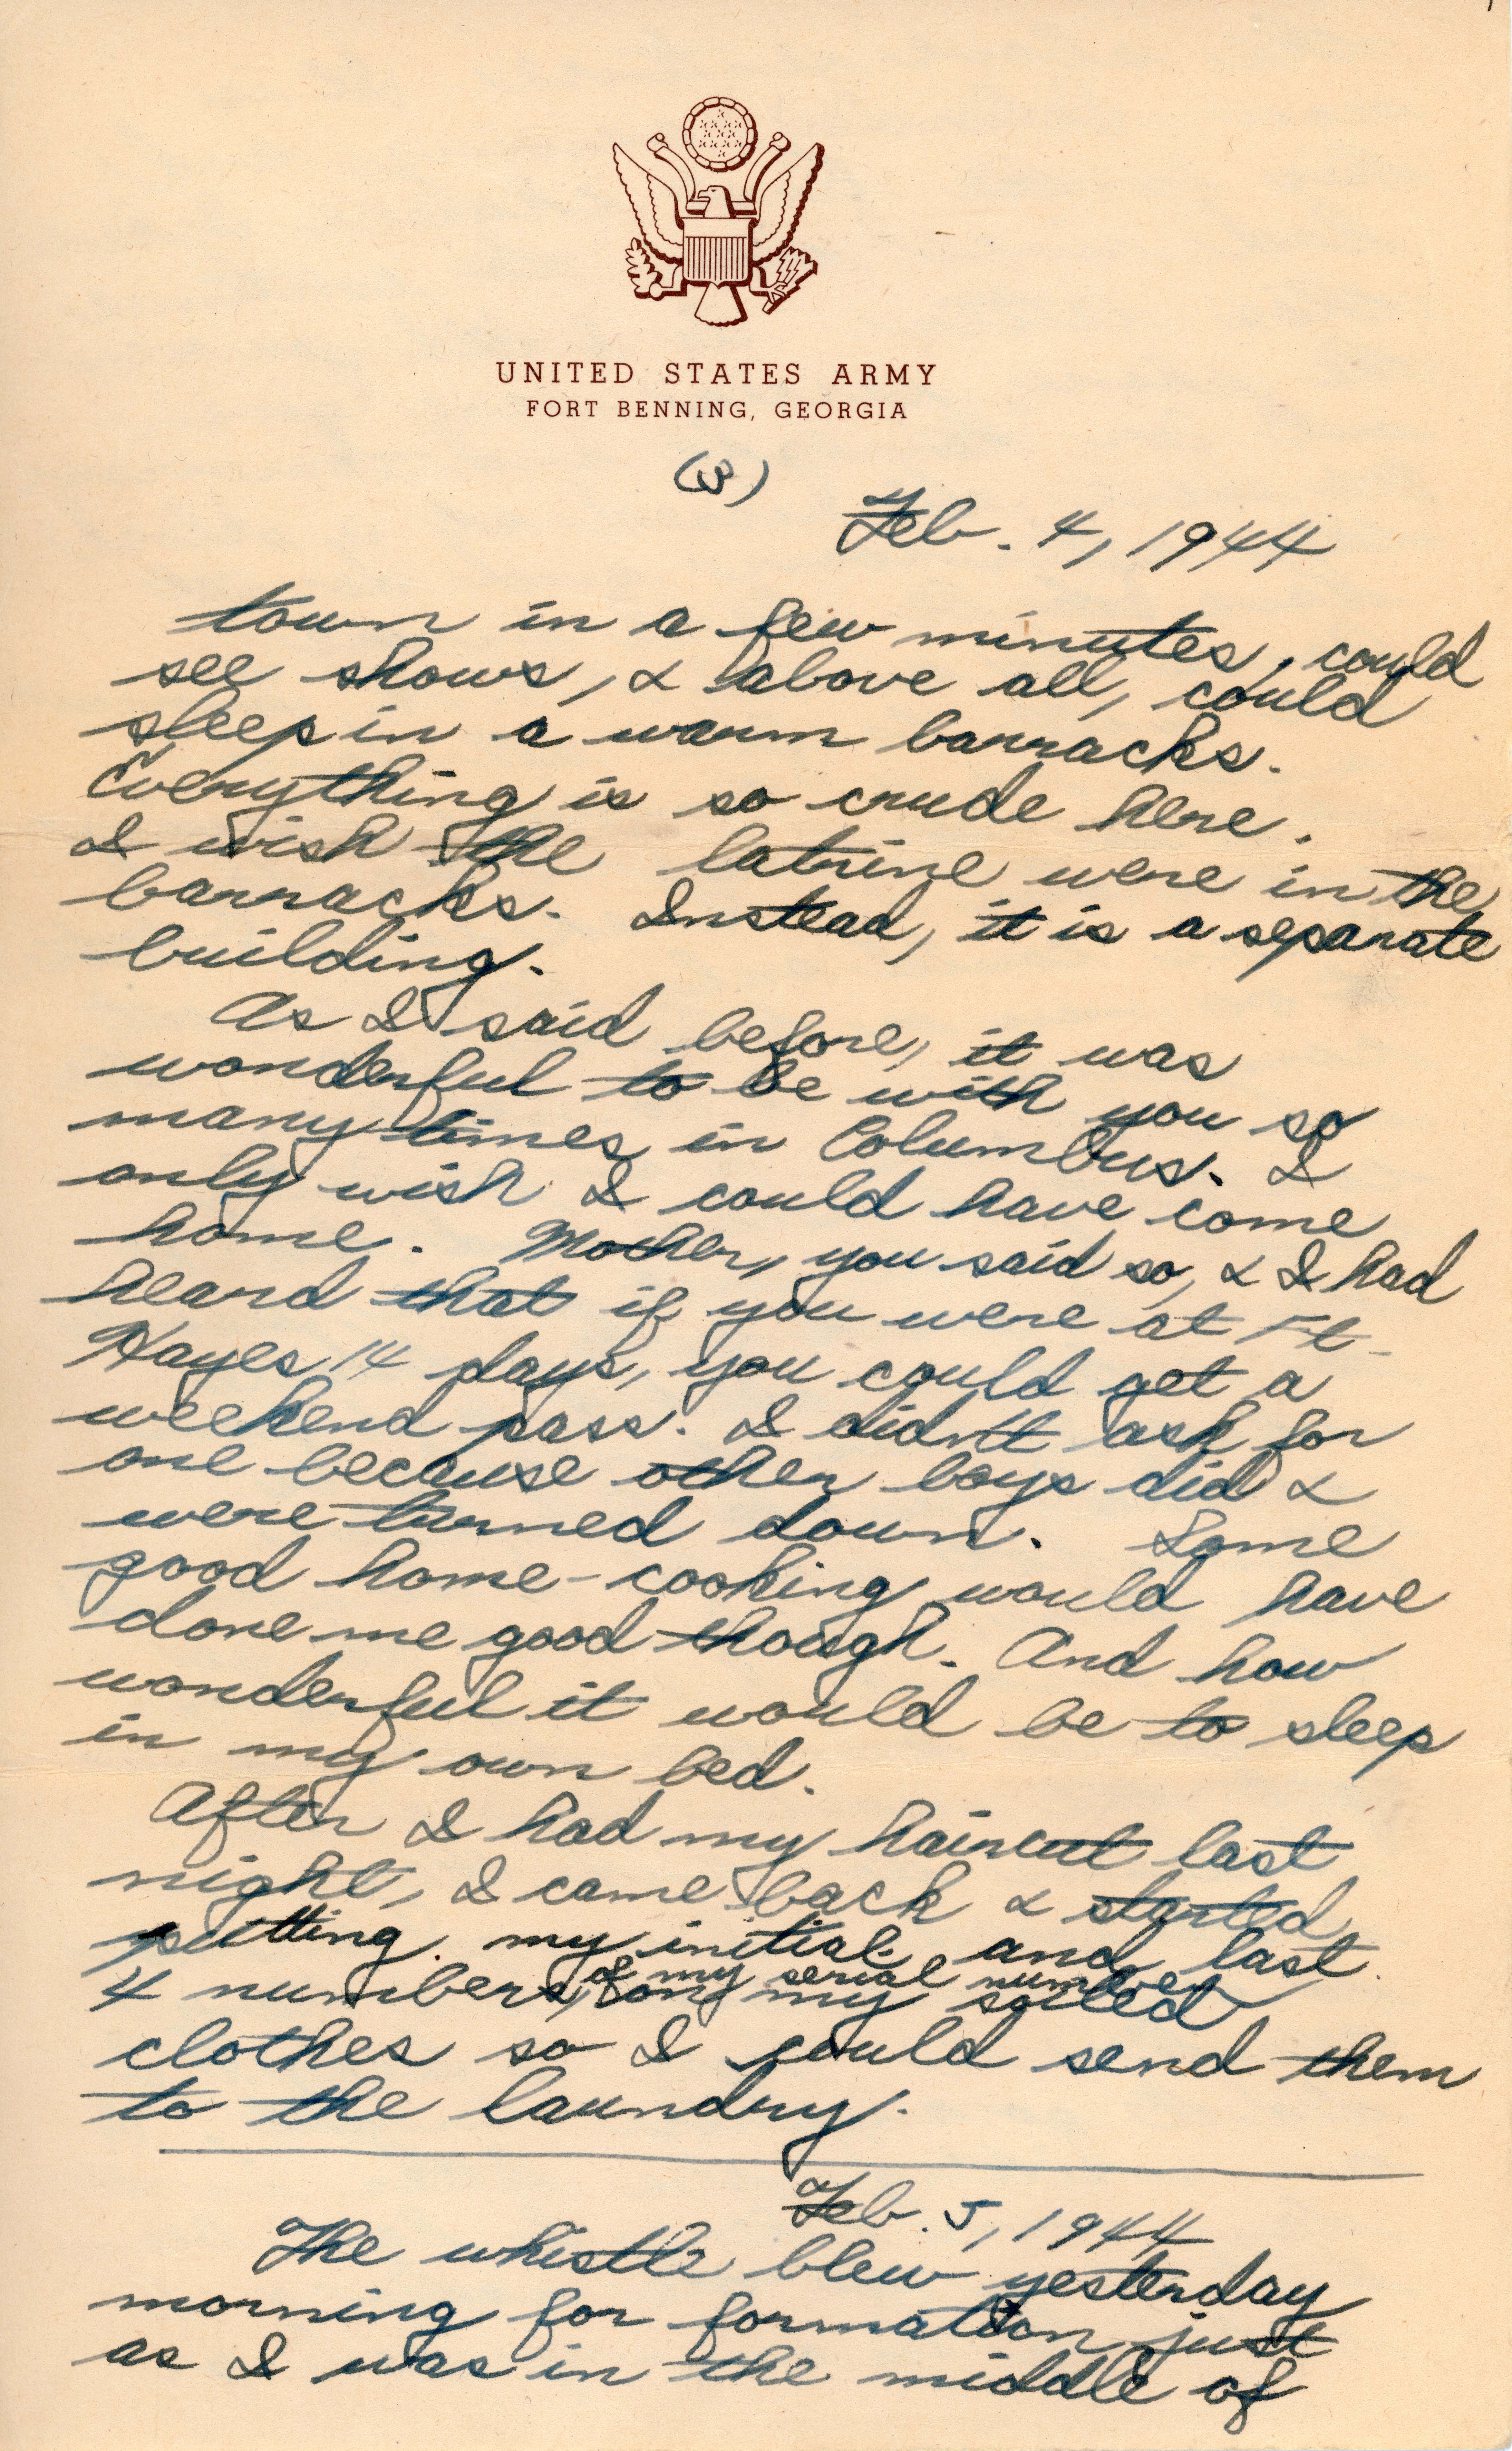 UNITED STATES ARMY
FORT BENNING, GEORGIA
(3)
Feb. 4, 1944
town in a few minutes, could
see shows, & above all, could
sleep in a warm barracks.
Everything is so crude here.
I wish the latrine were in the
barracks. Instead, it is a separate
building.
As I said before, it was
wonderful to be with you so
many times in Columbus. I
only wish I could have come
home. Mother, you said so, & I had
heard that if you were at Ft.
Hayes 14 days, you could get a
weekend pass. I didn't ask for
one because other boys did &
were turned down. Some
good home-cooking would have
done me good though. And how
wonderful it would be to sleep
in my own bed.
After I had my haircut last
night, I came back & started
putting my initial and last
of my serial number
4 numbers, on my soiled
clothes so I could send them
to the laundry.
Feb. 5, 1944
The whistle blew yesterday
morning for formation just
as I was in the middle of